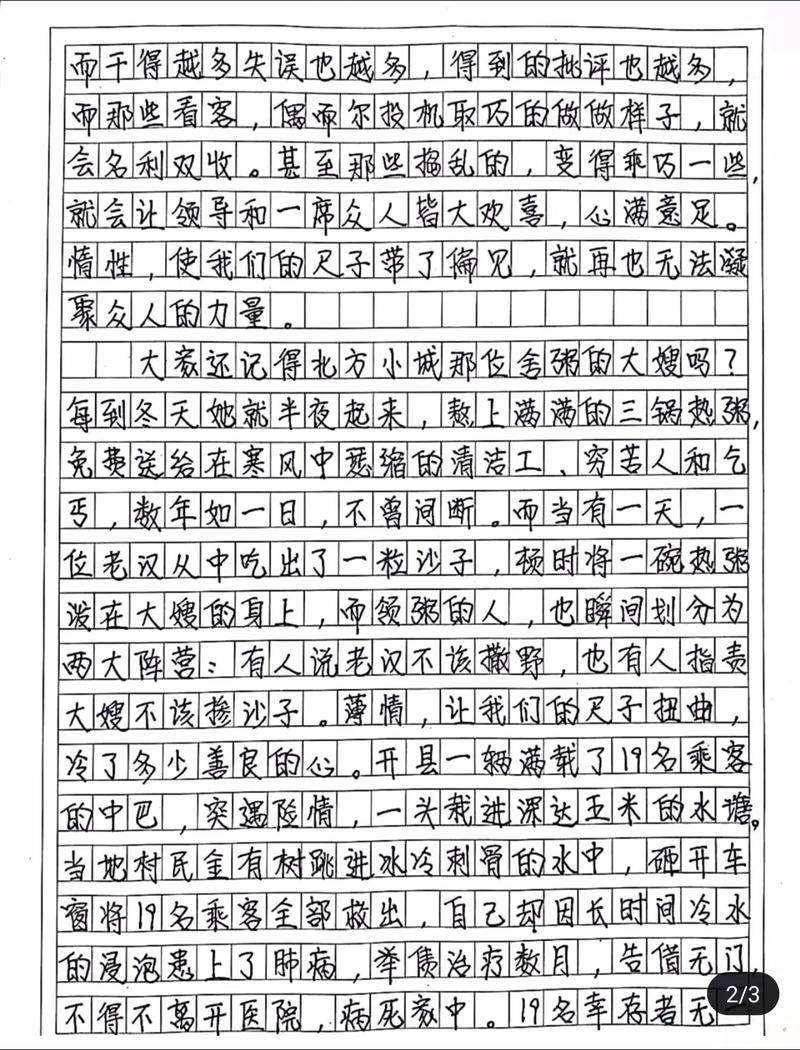 而干得越多失误也越多，得到的批评也越多，
而那些看客，偶而尔投机取巧的做做样子，就
会名利双收。甚至那些捣乱的，变得乖巧一些，
就会让领导和一席众人皆大欢喜，心满意足。
惰性，使我们的尺子带了偏见，就再也无法凝
聚众人的力量。
大家还记得北方小城那位舍粥的大嫂吗？
每到冬天她就半夜起来，熬上满满的三锅热粥，
免费送给在寒风中瑟缩的清洁工、穷苦人和乞
丐，数年如一日，不曾间断。而当有一天，一
位老汉从中吃出了一粒沙子，顿时将一碗热粥
泼在大嫂的身上，而领粥的人，也瞬间划分为
两大阵营：有人说老汉不该撒野，也有人指责
大嫂不该掺沙子。薄情，让我们的尺子扭曲，
冷了多少善良的心。开县一辆满载了19名乘客
的中巴，突遇险情，一头栽进深达五米的水塘。
当地村民金有树跳进冰冷刺骨的水中，砸开车
窗将19名乘客全部救出，自己却因长时间冷水
的浸泡患上了肺病，举债治疗数月，告借无门，
不得不离开医院，病死家中。19名幸存者无一
2/3